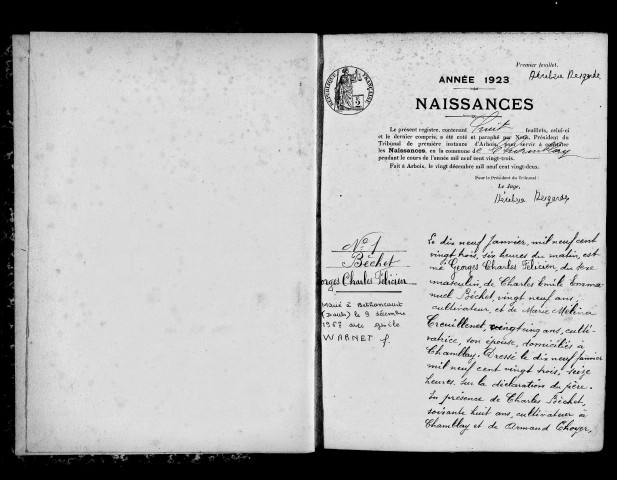 Premier feuillet.
ANNÉE 1923
RÉPUBLIQUE FRANÇAISE
NAISSANCES
Le présent registre, contenant huit feuillets, celui-ci
et le dernier compris, a été coté et paraphé par Nous, Président du
Tribunal de première instance d'Arbois, pour servir à constater
les Naissances, en la commune de Chamblay
pendant le cours de l'année mil neuf cent vingt-trois.
Fait à Arbois, le vingt décembre mil neuf cent vingt-deux.
Pour le Président du Tribunal :
Le Juge,
No 1
Béchet
Georges Charles Félicien
Marié à
(Doubs) le 9 décembre
1957 avec
WARNET f.
Le dix neuf Janvier, mil neuf cent
vingt trois, six heures du matin, est
né Georges Charles Félicien, du sexe
masculin, de Charles Emile Emma-
nuel Béchet, vingt neuf ans,
cultivateur, et de Marie Mélina
Treuillenet, vingt cinq ans, culti-
vatrice, son épouse, domiciliés à
Chamblay. Dressé le dix neuf Janvier
mil neuf cent vingt trois, seize
heures. sur la déclaration du père.
En présence de Charles Béchet,
soixante huit ans, cultivateur à
Chamblay et de Armand Choyer,